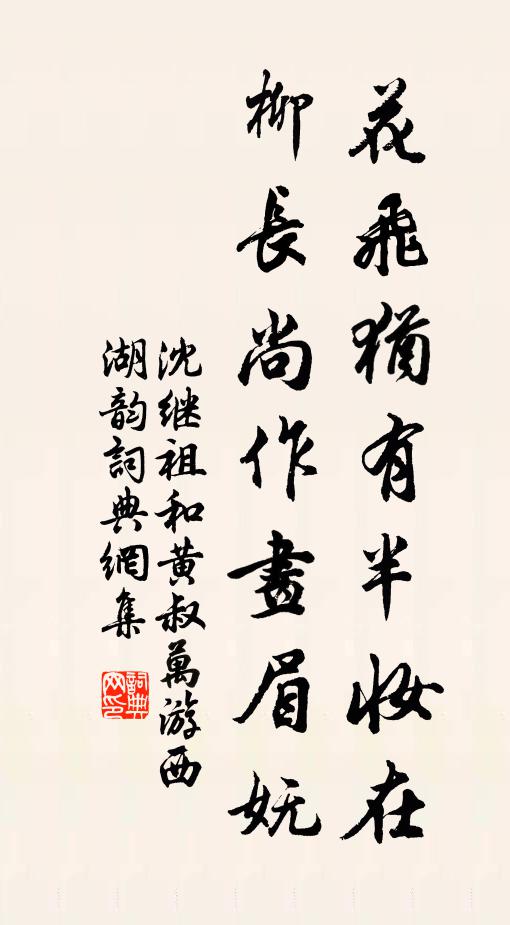 花飛猶有半妝在
柳長尚作畫眉妩
沈继祖和黄叔萬游西
湖韵詞典網集
詞典網印